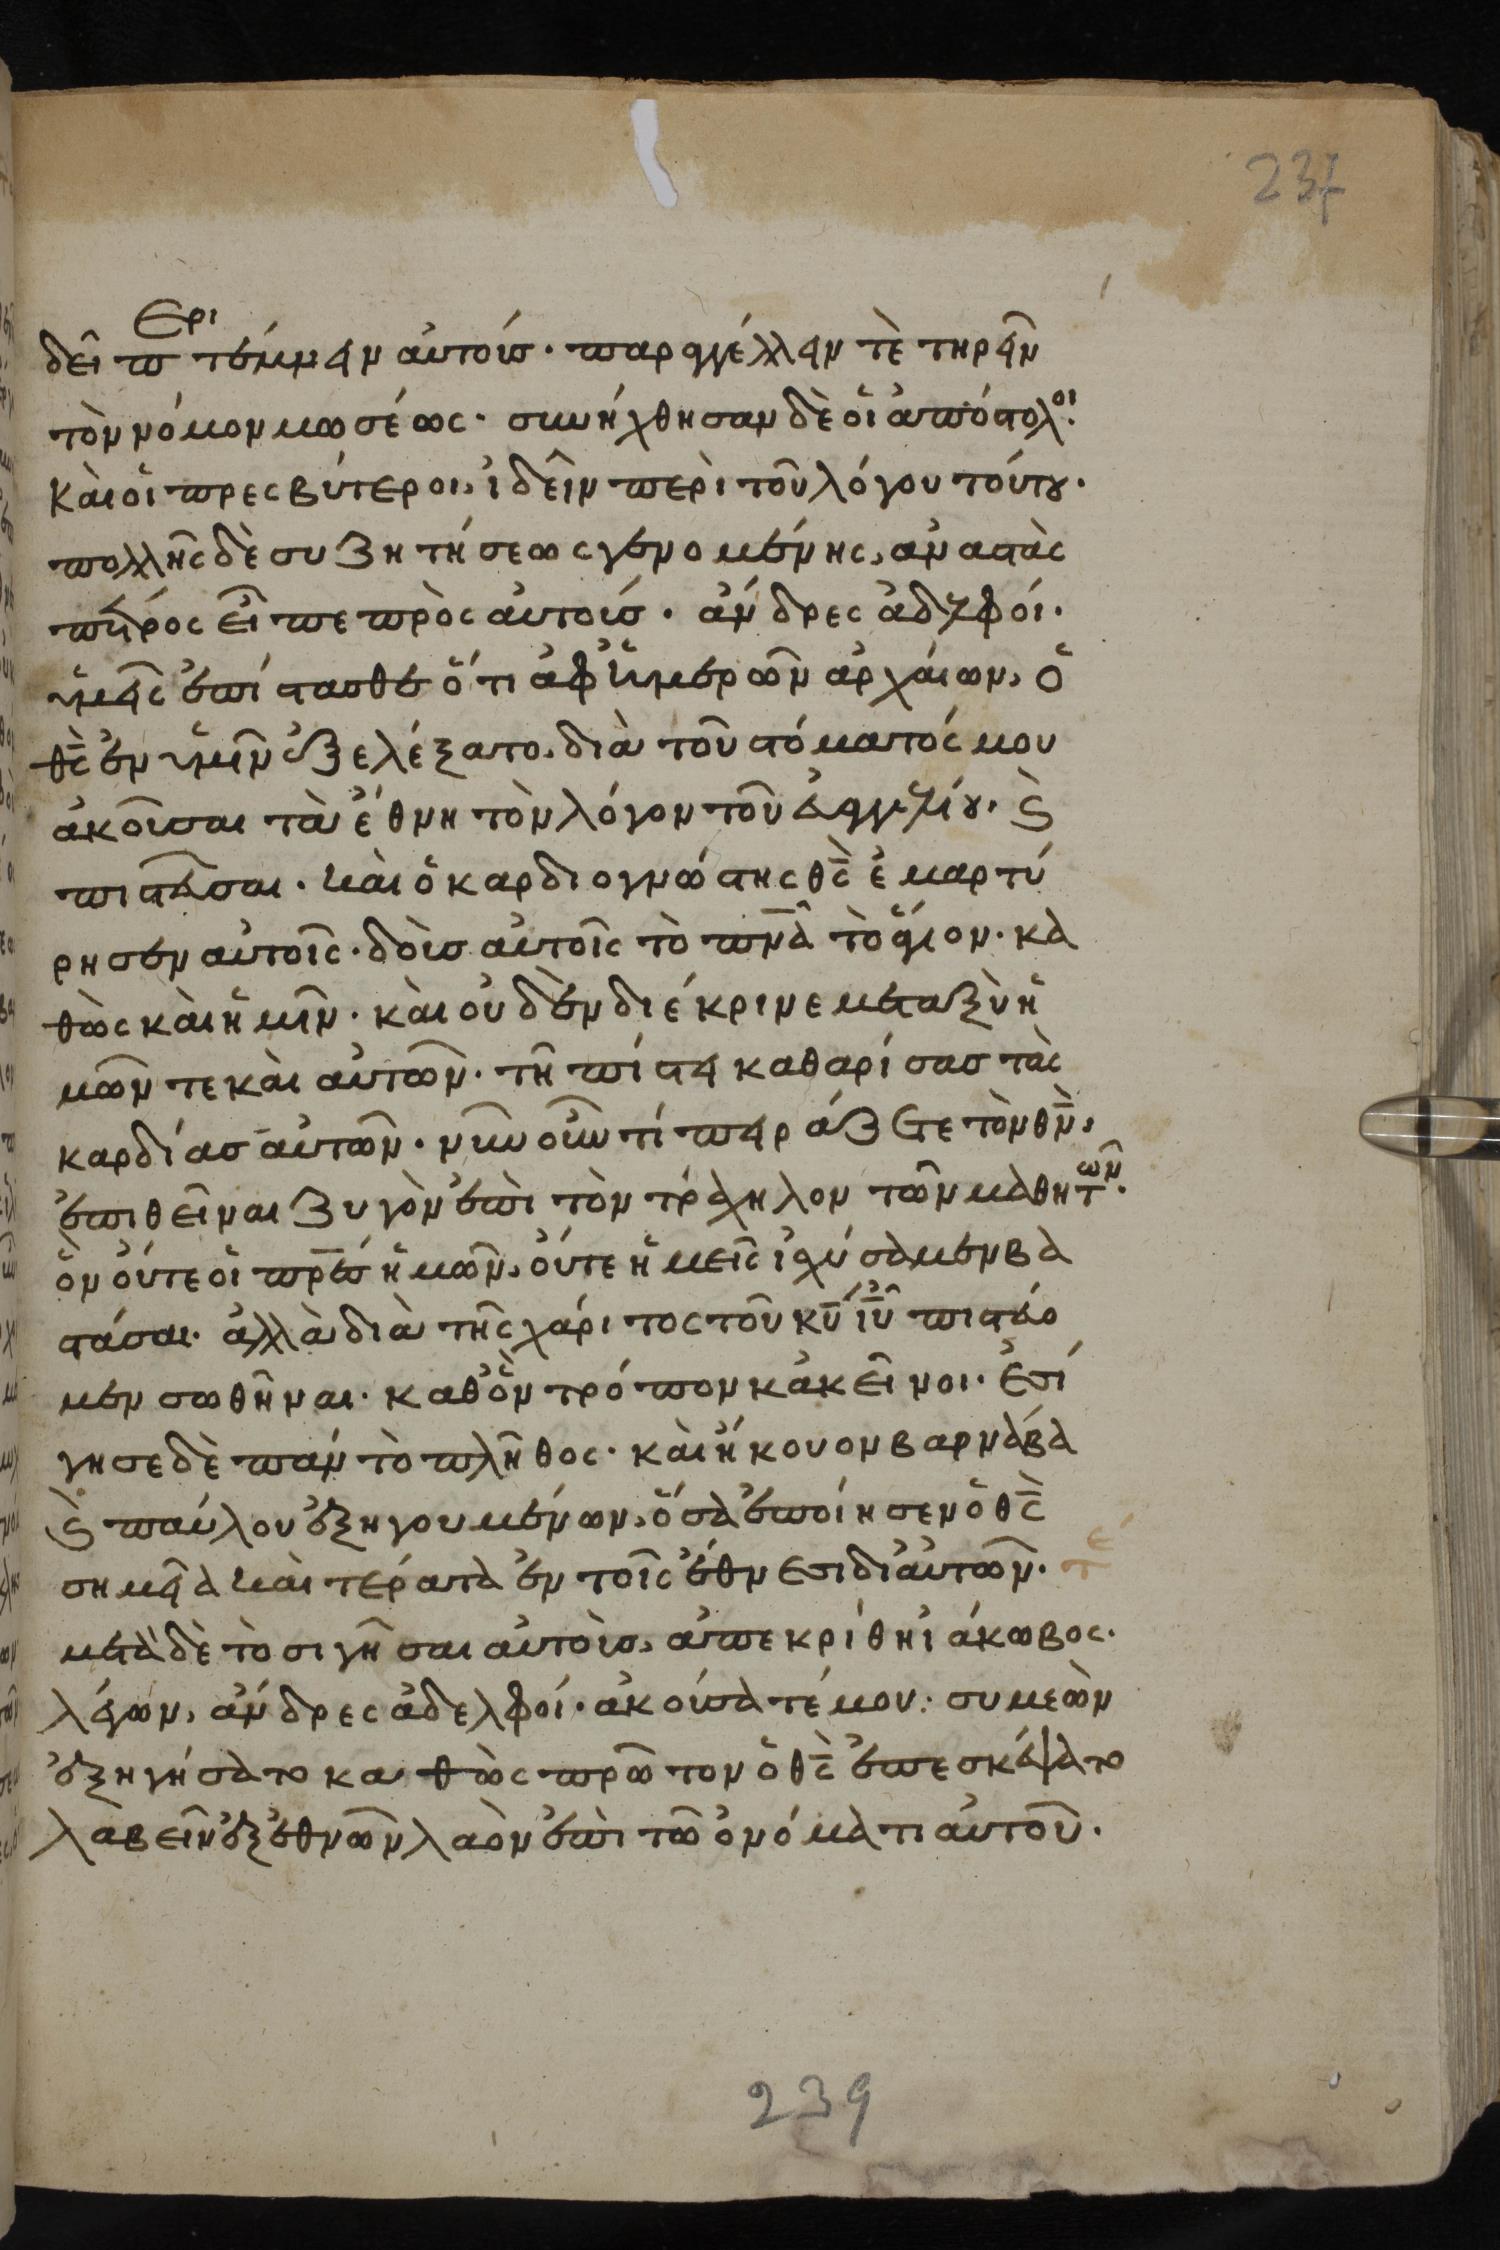 237
δεῖ περιτέμνειν αὐτοίς· παραγγέλλειν τὲ τηρεῖν
τὸν νόμον μωσέως· συνήχθησαν δὲ οἱ ἀπόστολοι·
καὶ οἱ πρεσβύτεροι, ἰδεῖν περὶ τοῦ λόγου τούτου·
πολλῆς δὲ συζητήσεως γενομένης, ἀναστὰς
πέτρος εἶπε πρὸς αὐτούς· ἄνδρες ἀδελφοί·
ὑμεῖς ἐπίστασθε ὅτι ἀφ' ἡμερῶν ἀρχαίων, ὁ
θς̅ ἐν ὑμῖν ἐξελέξατο, διὰ τοῦ στόματός μου
ἀκοῦσαι τὰ ἔθνη τὸν λόγον τοῦ εὐαγγελίου, ϗ
πιστεῦσαι· καὶ ὁ καρδιογνώστης θς̅ ἐμαρτύ
ρησεν αὐτοῖς· δοὺς αὐτοῖς τὸ πν̅α τὸ ἅγιον· κα
θὼς καὶ ἡμῖν· καὶ οὐδὲν διέκρινε μεταξὺ ἡ
μῶν τε καὶ αὐτῶν· τῆ πίστει καθαρίσας τὰς
καρδίας αὐτῶν· νῦν οὖν τί πειράζετε τὸν θν̅,
ἐπιθεῖναι ζυγὸν ἐπὶ τὸν τράχηλον τῶν μαθητῶν·
ὃν οὔτε οἱ πρ̅ες ἡμῶν, οὔτε ἡμεῖς ἰσχύσαμεν βα
στάσαι· ἀλλὰ διὰ τῆς χάριτος τοῦ κυ̅ ἰυ̅ πιστεύο
μεν σωθῆναι· καθ' ὃν τρόπον κἀκεῖνοι· ἐσί
γησε δὲ πᾶν τὸ πλῆθος· καὶ ἤκουον βαρνάβα
ϗ παύλου ἐξηγουμένων, ὅσα ἐποίησεν ὁ θς̅
σημεῖα καὶ τέρατα ἐν τοῖς ἔθνεσι δι' αὐτῶν· τέ
μετὰ δὲ τὸ σιγῆσαι αὐτοὺς, ἀπεκρίθη ἰάκωβος·
λέγων, ἄνδρες ἀδελφοί· ἀκούσατέ μου· συμεὼν
ἐξηγήσατο καθὼς πρῶτον ὁ θς̅ ἐπεσκέψατο
λαβεῖν ἐξ ἐθνῶν λαὸν ἐπὶ τῶ ὀνόματι αὐτοῦ·
239